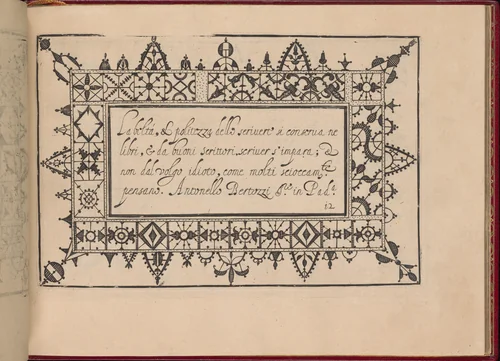 La beltà, & politezza dello scriuere si conserua ne
libri, & da buoni scrittori scriuer s'impara; &
non dal volgo idioto, come molti scioccam.te
pensano. Antonello Bertozzi S.re in Pad.a
12